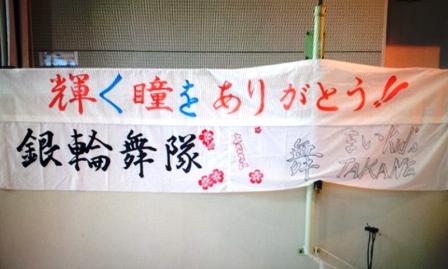 輝く瞳をありがとう!!
銀輪舞隊
舞
まいKid's
TAKANE